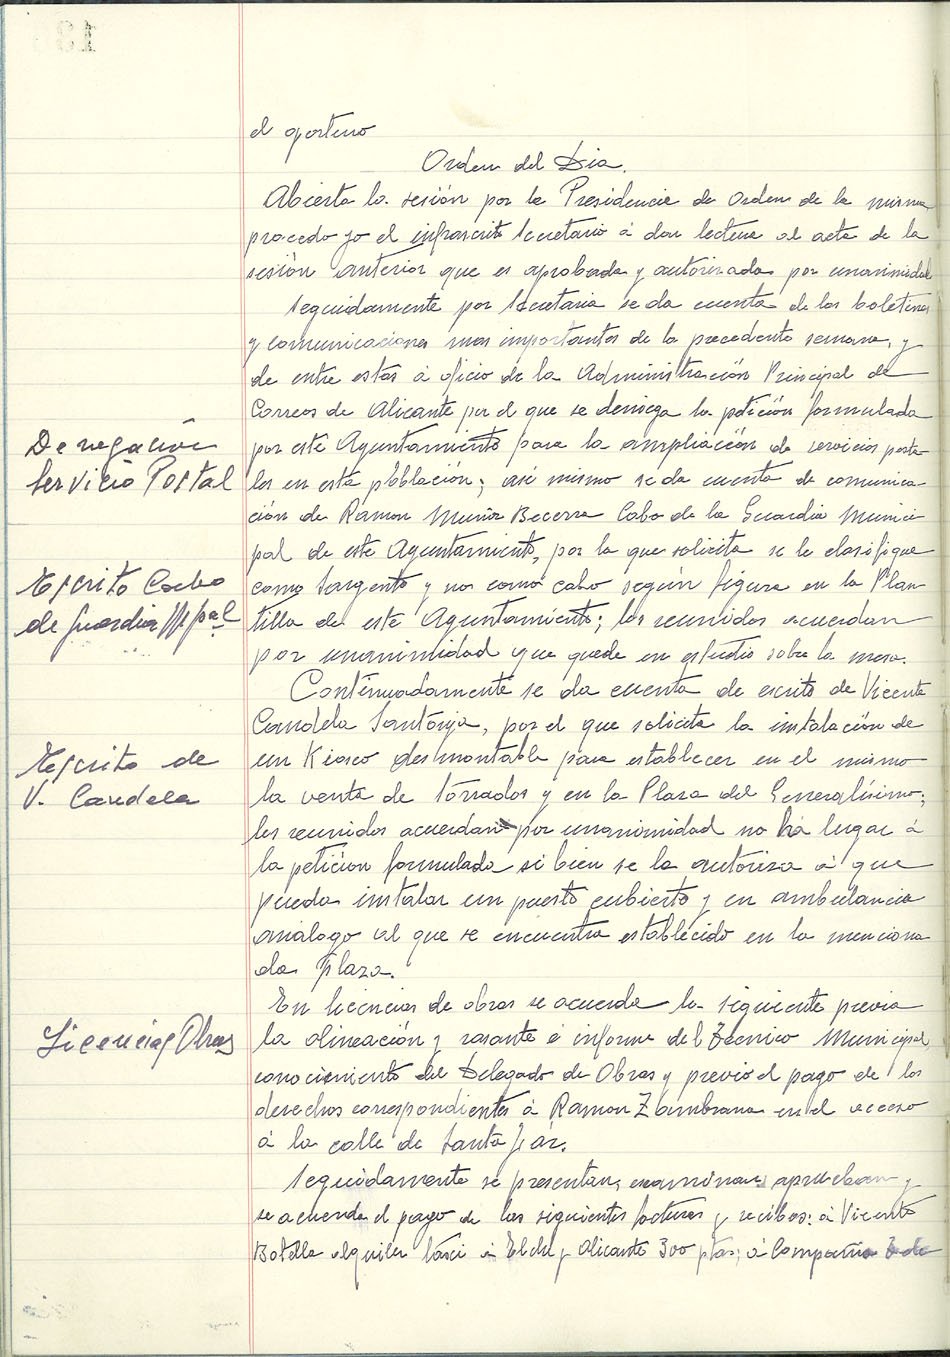 el oportuno
Orden del Dia.
Abierta la sesión por la Presidencia de Orden de la misma
procedo yo el infrascrito Secretario á dar lectura al acta de la
sesión anterior que es aprobada y autorizada por unanimidad
Seguidamente por Secretaria se da cuenta de los boletines
y comunicaciones mas importantes de la precedente semana, y
de entre estas á oficio de la Administración Principal de
Correos de Alicante por el que se deniega la petición formulada
Denegación
Servicio Postal
por este Ayuntamiento para la ampliación de servicios posta-
les en esta población; asi mismo se da cuenta de comunica-
ción de Ramon Muñoz Becerra Cabo de la Guardia Munici-
pal de este Ayuntamiento, por la que solicita se le clasifique
Escrito Cabo
de Guardia Mpal
como Sargento y no como cabo según figura en la Plan-
tilla de este Ayuntamiento; los reunidos acuerdan
por unanimidad que quede en estudio sobre la mesa.
Continuadamente se da cuenta de escrito de Vicente
Candela Santonja, por el que solicita la instalación de
Escrito de
V. Candela
un Kiosco desmontable para establecer en el mismo
la venta de torrados y en la Plaza del Generalísimo;
los reunidos acuerdan por unanimidad no ha lugar á
la petición formulada si bien se la autoriza á que
pueda instalar un puesto cubierto y en ambulancia
análogo al que se encuentra establecido en la menciona
da Plaza.
En licencias de obras se acuerda la siguiente previa
Licencias Obras
la alineación y rasante é informe del Técnico Municipal,
conocimiento del Delegado de Obras y previo el pago de los
derechos correspondientes á Ramon Zambrana en el acceso
á la calle de Santa
Seguidamente se presentan, examinan, aprueban y
se acuerda el pago de las siguientes facturas y recibos: á Vicente
Botella alquiler taxi á Elche y Alicante 300 ptas; á Compañia